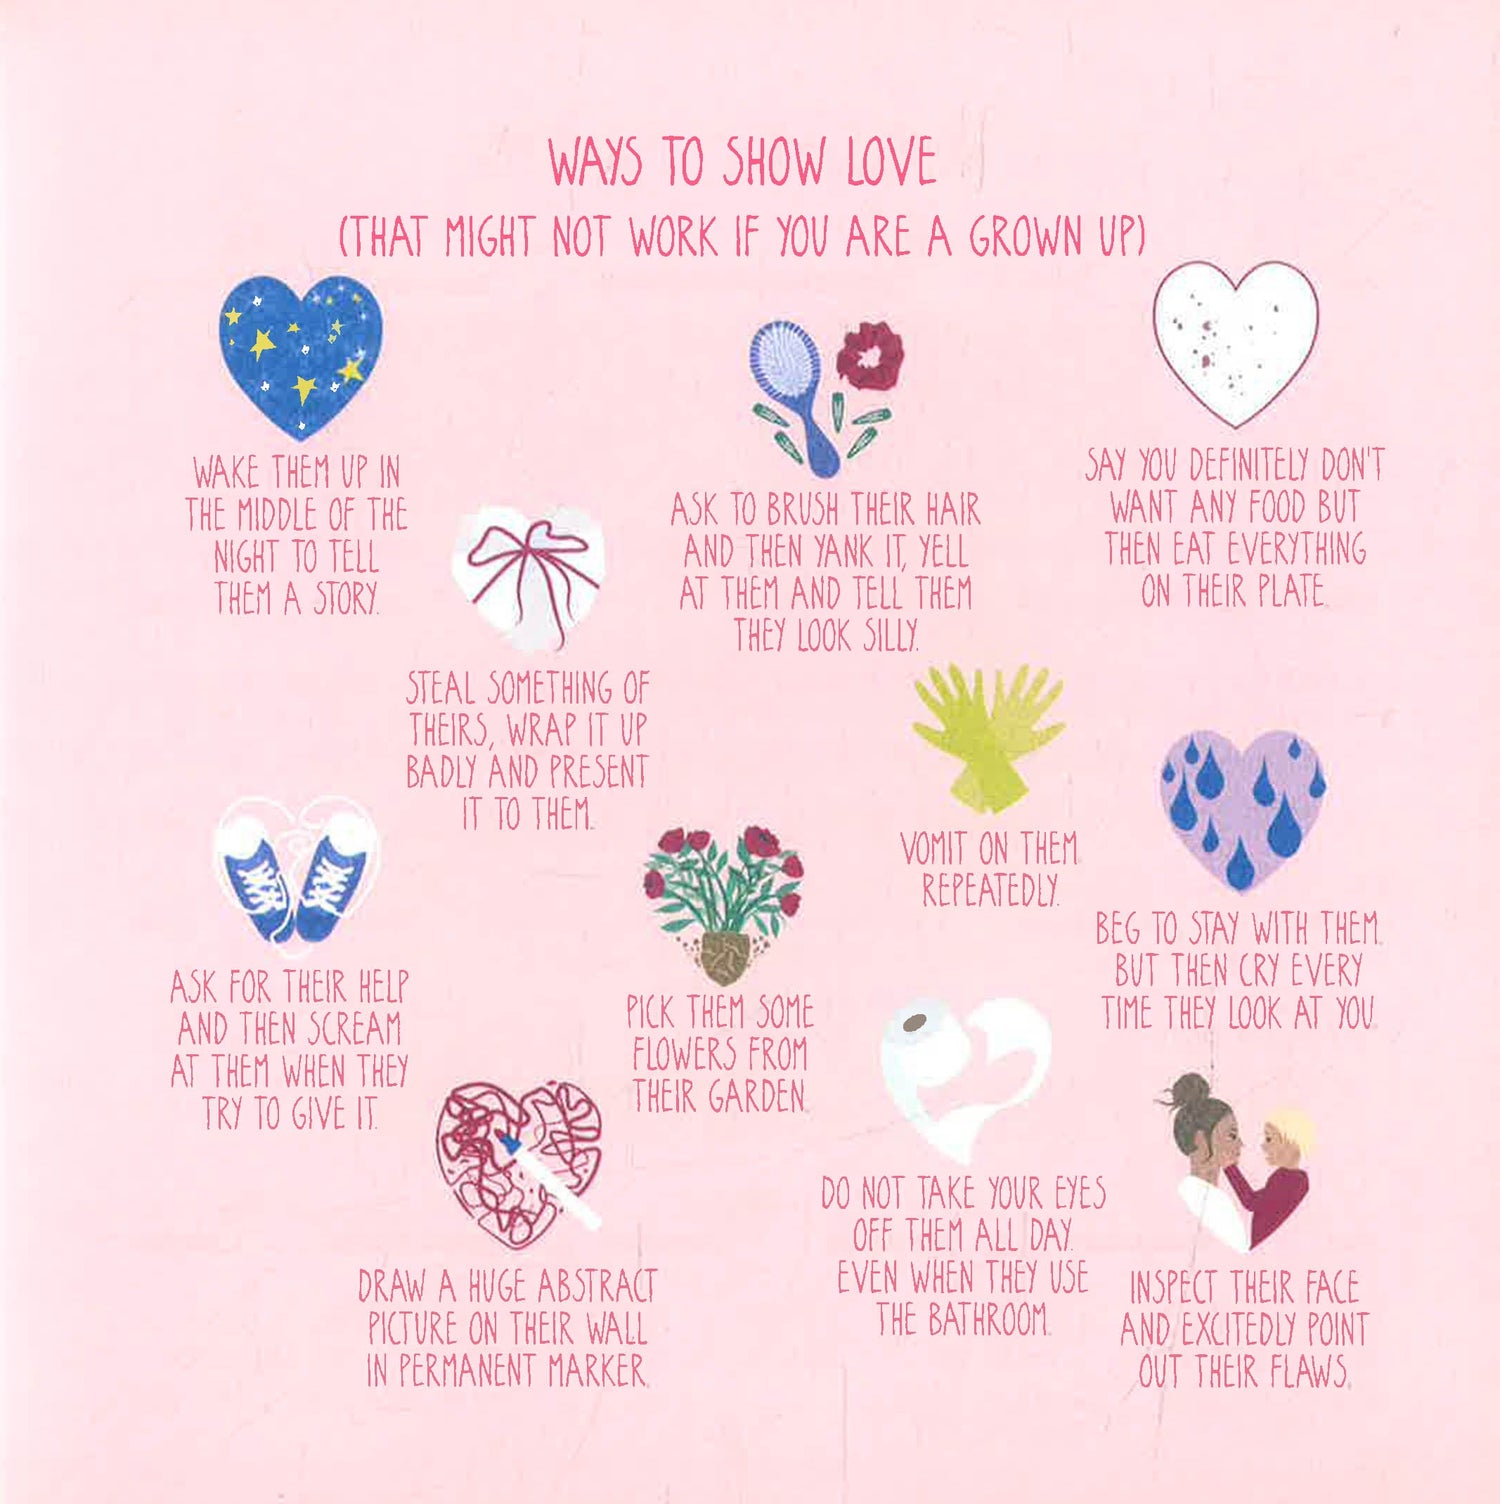 WAYS TO SHOW LOVE
(THAT MIGHT NOT WORK IF YOU ARE A GROWN UP)
WAKE THEM UP IN
THE MIDDLE OF THE
NIGHT TO TELL
THEM A STORY.
ASK TO BRUSH THEIR HAIR
AND THEN YANK IT, YELL
AT THEM AND TELL THEM
THEY LOOK SILLY.
SAY YOU DEFINITELY DON'T
WANT ANY FOOD BUT
THEN EAT EVERYTHING
ON THEIR PLATE.
STEAL SOMETHING OF
THEIRS, WRAP IT UP
BADLY AND PRESENT
IT TO THEM.
VOMIT ON THEM
REPEATEDLY.
BEG TO STAY WITH THEM.
BUT THEN CRY EVERY
TIME THEY LOOK AT YOU.
ASK FOR THEIR HELP
AND THEN SCREAM
AT THEM WHEN THEY
TRY TO GIVE IT.
PICK THEM SOME
FLOWERS FROM
THEIR GARDEN.
DO NOT TAKE YOUR EYES
OFF THEM ALL DAY.
EVEN WHEN THEY USE
THE BATHROOM.
DRAW A HUGE ABSTRACT
PICTURE ON THEIR WALL
IN PERMANENT MARKER.
INSPECT THEIR FACE
AND EXCITEDLY POINT
OUT THEIR FLAWS.